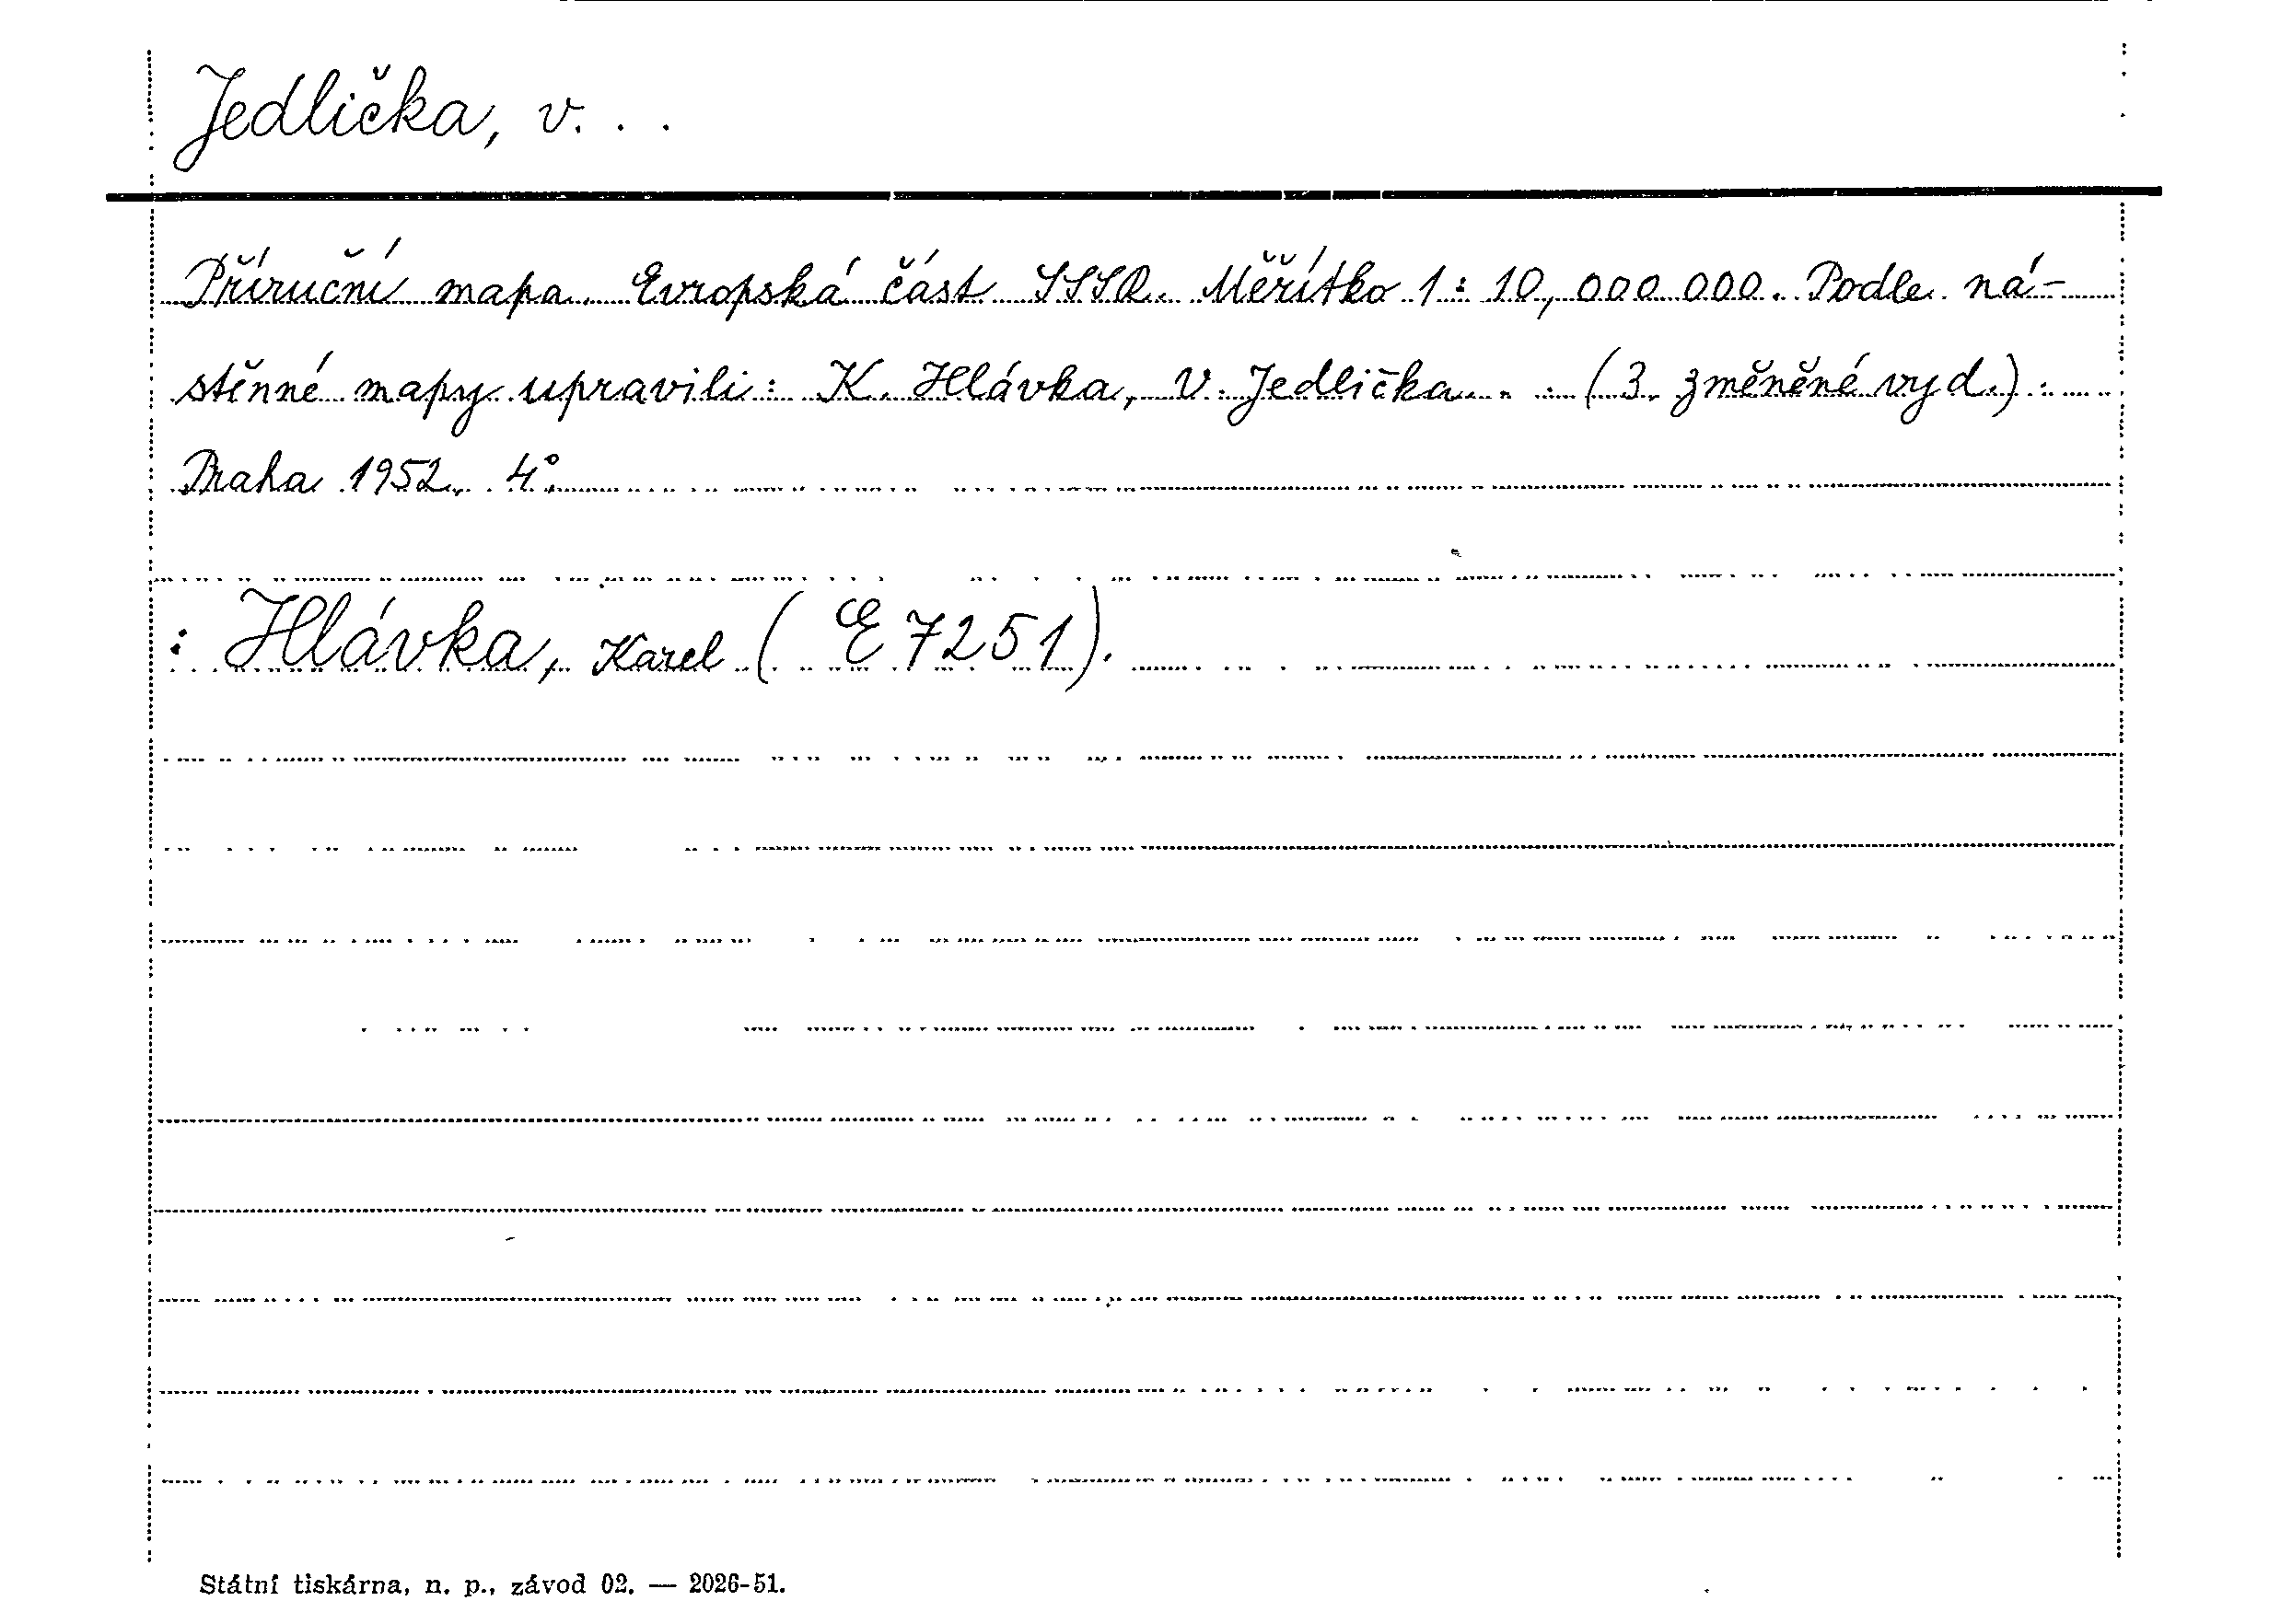 Jedlička, v. . .
Příruční mapa. Evropská část SSSR. Měřítko 1 : 10,000 000. Podle ná-
stěnné mapy upravili: K. Hlávka, V. Jedlička. . . (3. změněné vyd.).
Praha 1952. 4°.
: Hlávka, Karel (E 7251).
Státní tiskárna, n. p., závod 02. — 2026-51.